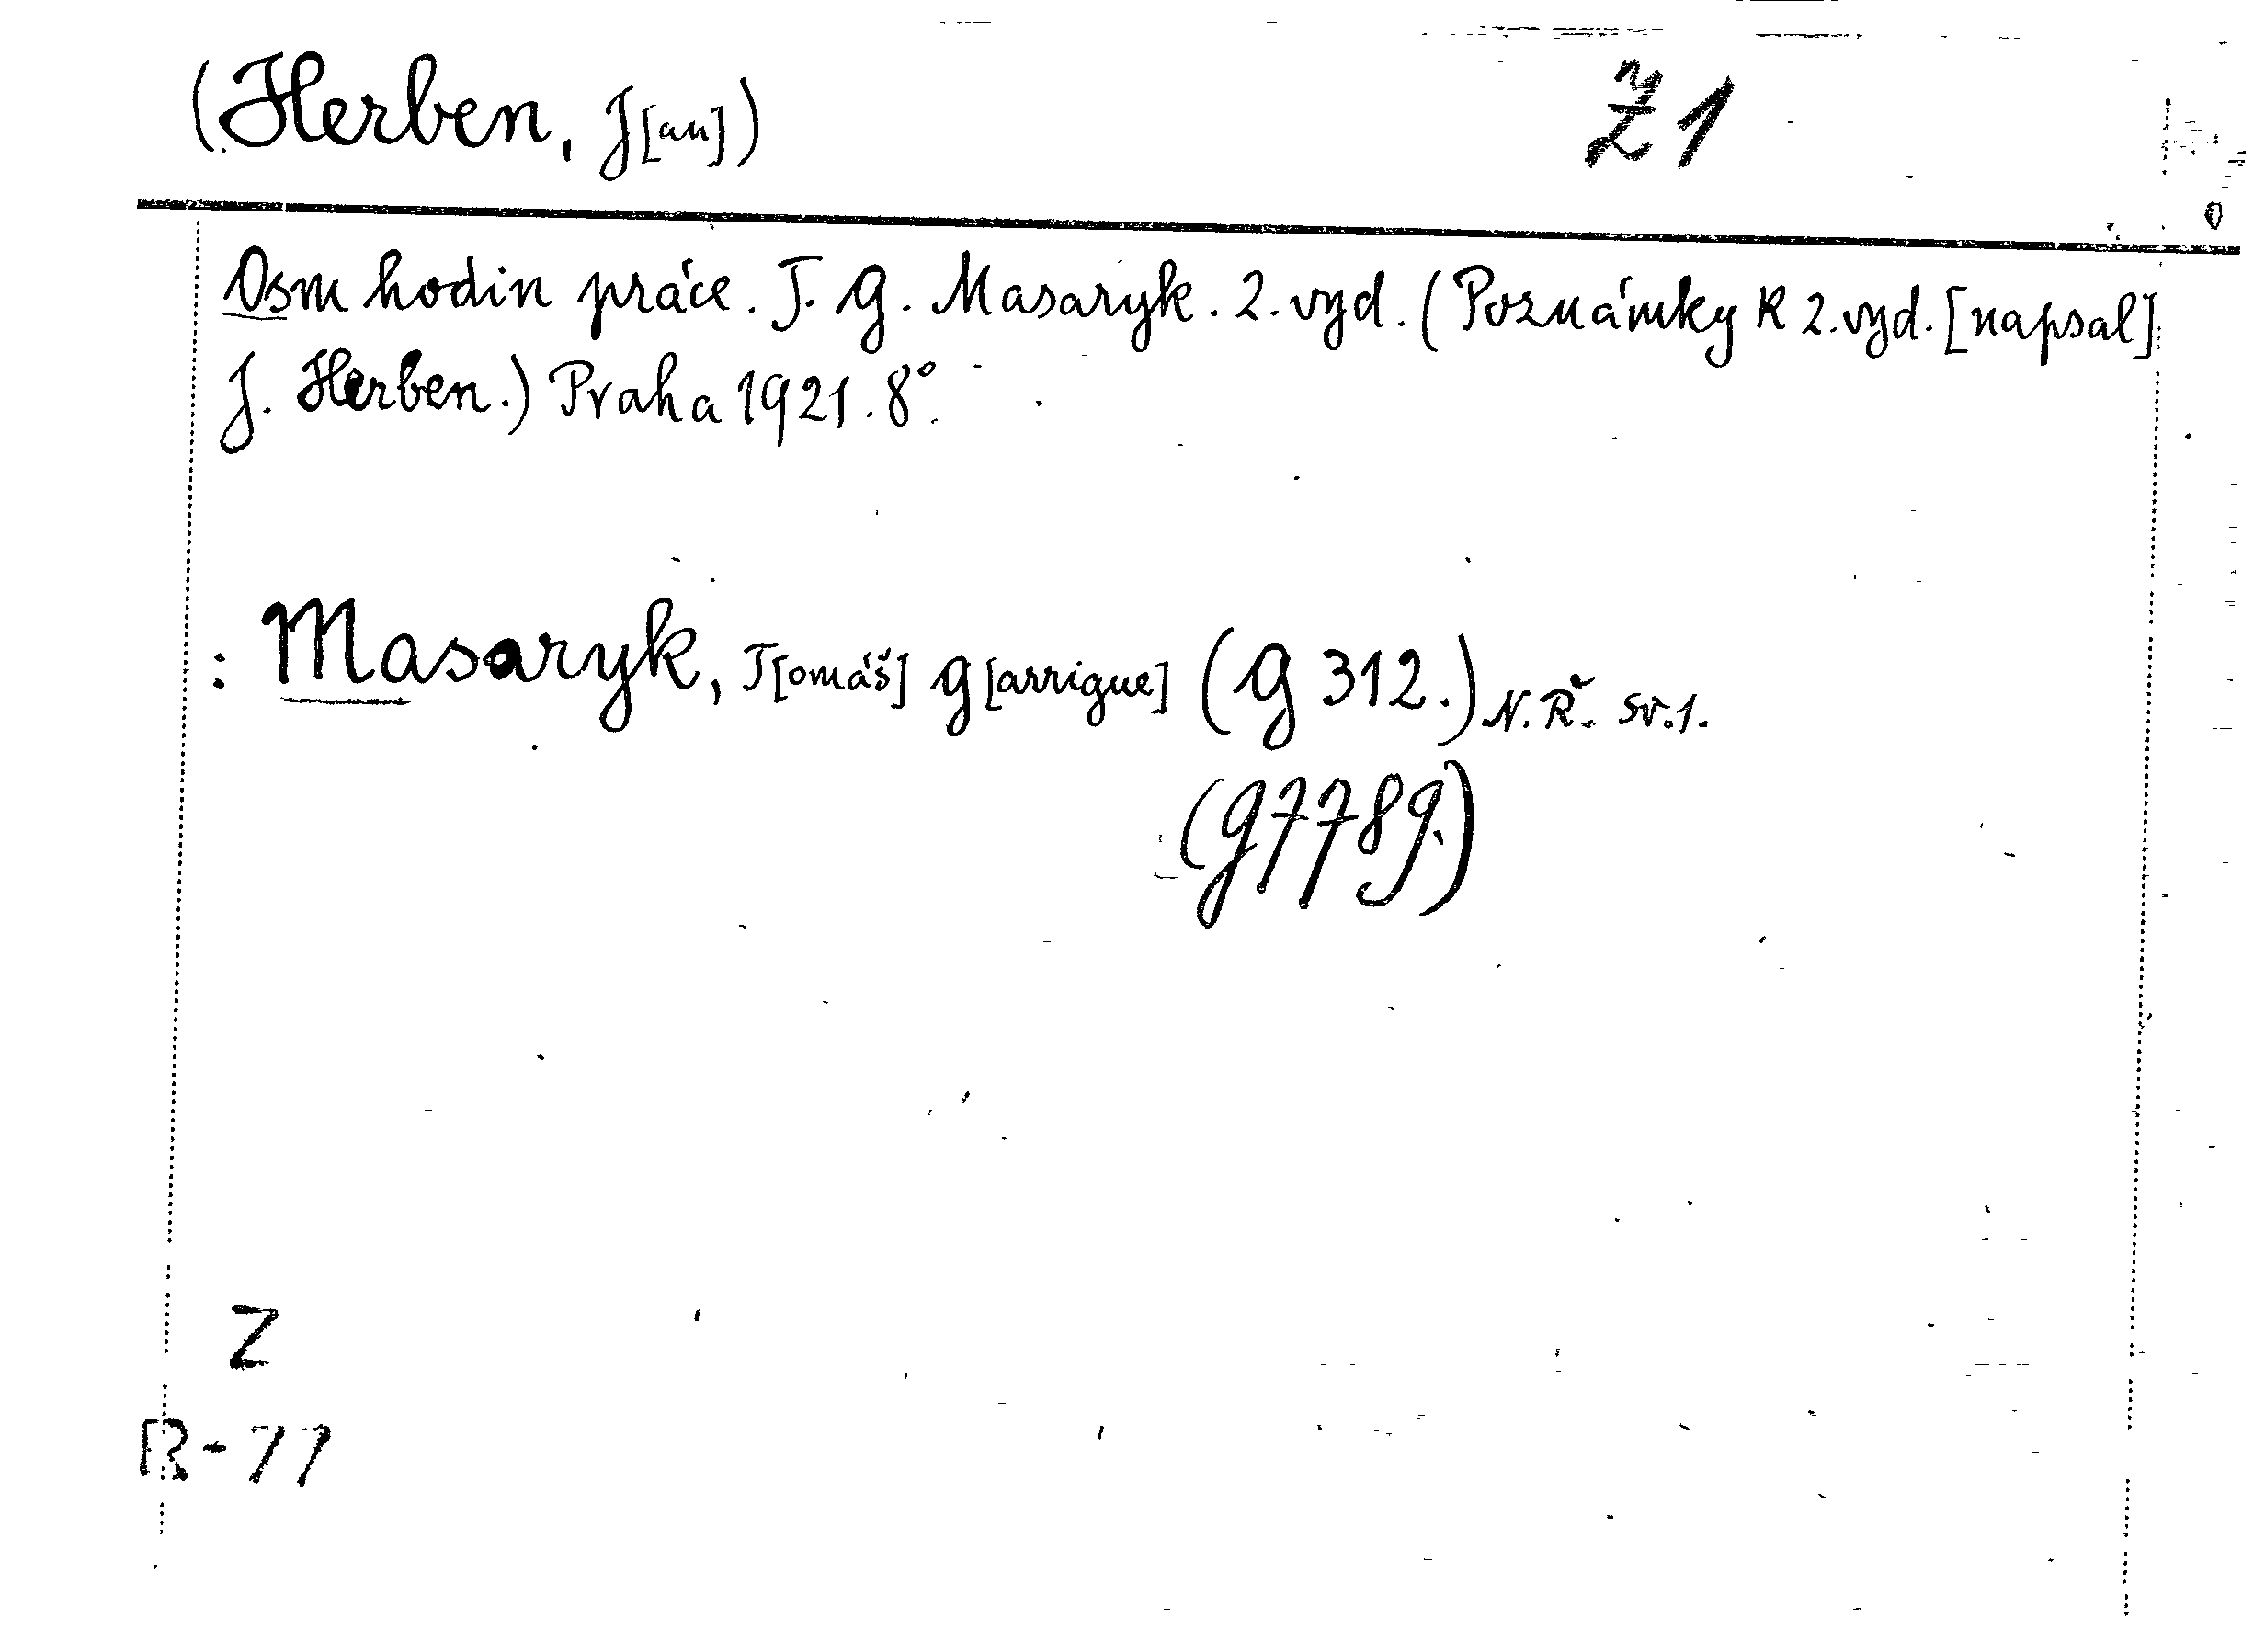 (Herben, J[an]) Ž1
Osm hodin práce. T. G. Masaryk. 2. vyd. (Poznámky k 2. vyd. [napsal]
J. Herben.) Praha 1921. 8°.
: Masaryk, T[omáš] G[arrigue] (G 312.) N. Ř. sv. 1.
(G 7789.)
Z
R-77